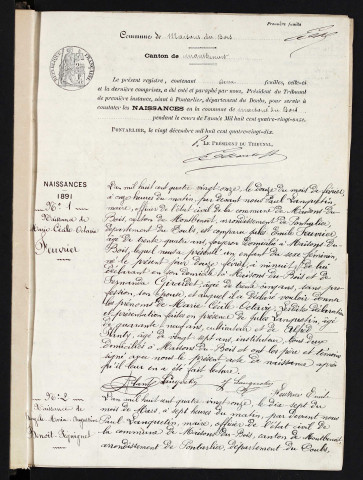 Première feuille
Commune de Maisons du Bois
Canton de Montbenoit
Le présent registre, contenant feuilles, celle-ci
et la dernière comprises, a été coté et paraphé par nous, Président du Tribunal
de première instance, séant à Pontarlier, département du Doubs, pour servir à
constater les NAISSANCES en la commune de Maisons du Bois
pendant le cours de l'année Mil huit cent quatre-vingt-onze.
PONTARLIER, le vingt décembre mil huit cent quatre-vingt-dix.
LE PRÉSIDENT DU TRIBUNAL
NAISSANCES
1891
N° 1
Naissance de
Marie Cécile Octavie
Feuvrier
L'an mil huit cent quatre vingt onze, le douze du mois de février
à onze heures du matin, par devant nous Paul Lanquetin,
maire, officier de l'état civil de la commune de Maisons du
Bois, canton de Montbenoit, arrondissement de Pontarlier,
département du Doubs, est comparu Jules Emile Feuvrier,
âgé de trente quatre ans, domicilié à Maisons du
Bois, lequel nous a présenté un enfant du sexe féminin,
né le présent jour douze février à minuit, de lui
déclarant en son domicile à Maisons du Bois et de
Girardet, âgée de trente cinq ans, sans pro-
fession, son épouse, et auquel il a déclaré vouloir donner
les prénoms de Marie Cécile Octavie. Lesdites déclaration
et présentation faites en présence de Jules Lanquetin, âgé
de quarante neuf ans, cultivateur et de
âgé de vingt sept ans, instituteur, tous deux
domiciliés à Maisons du Bois et ont les père et témoins
signé avec nous le présent acte de naissance après
qu'il leur en a été fait lecture.
Feuvrier Emile
N° 2
Naissance de
Marie Augustine
L'an mil huit cent quatre vingt onze, le dix sept du
mois de Mars, à sept heures du matin, par devant nous
Paul Lanquetin, maire, officier de l'état civil de
la commune de Maisons du Bois, canton de Montbenoit,
arrondissement de Pontarlier, département du Doubs,